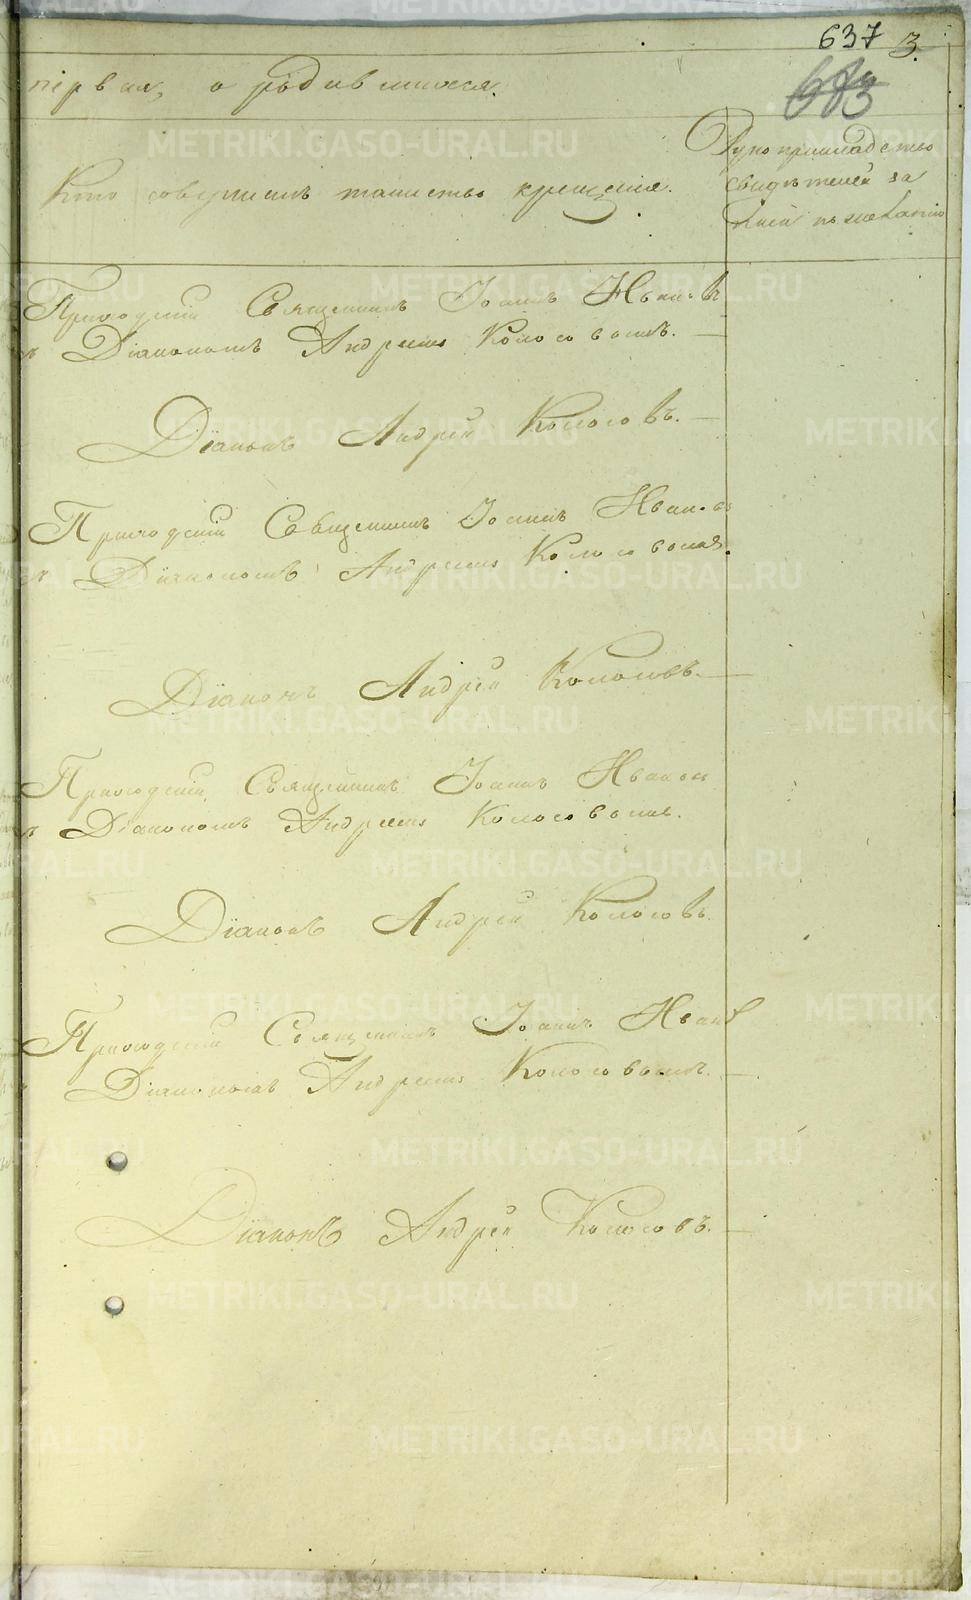 637 3.
683
первая, о родившихся.
Кто совершилъ таинство крещенія.
Рукоприкладство
свидѣтелей за
писи по желанію
Приходскій Священникъ Іоаннъ Ивановъ
съ Діакономъ Андреемъ Колосовымъ.
Діаконъ Андрей Колосовъ.
Приходскій Священникъ Іоаннъ Ивановъ
съ Діакономъ Андреемъ Колосовымъ.
Діаконъ Андрей Колосовъ.
Приходскій Священникъ Іоаннъ Ивановъ
съ Діакономъ Андреемъ Колосовымъ.
Діаконъ Андрей Колосовъ.
Приходскій Священникъ Іоаннъ Ивановъ
Діакономъ Андреемъ Колосовымъ.
Діаконъ Андрей Колосовъ.
METRIKI.GASO-URAL.RU